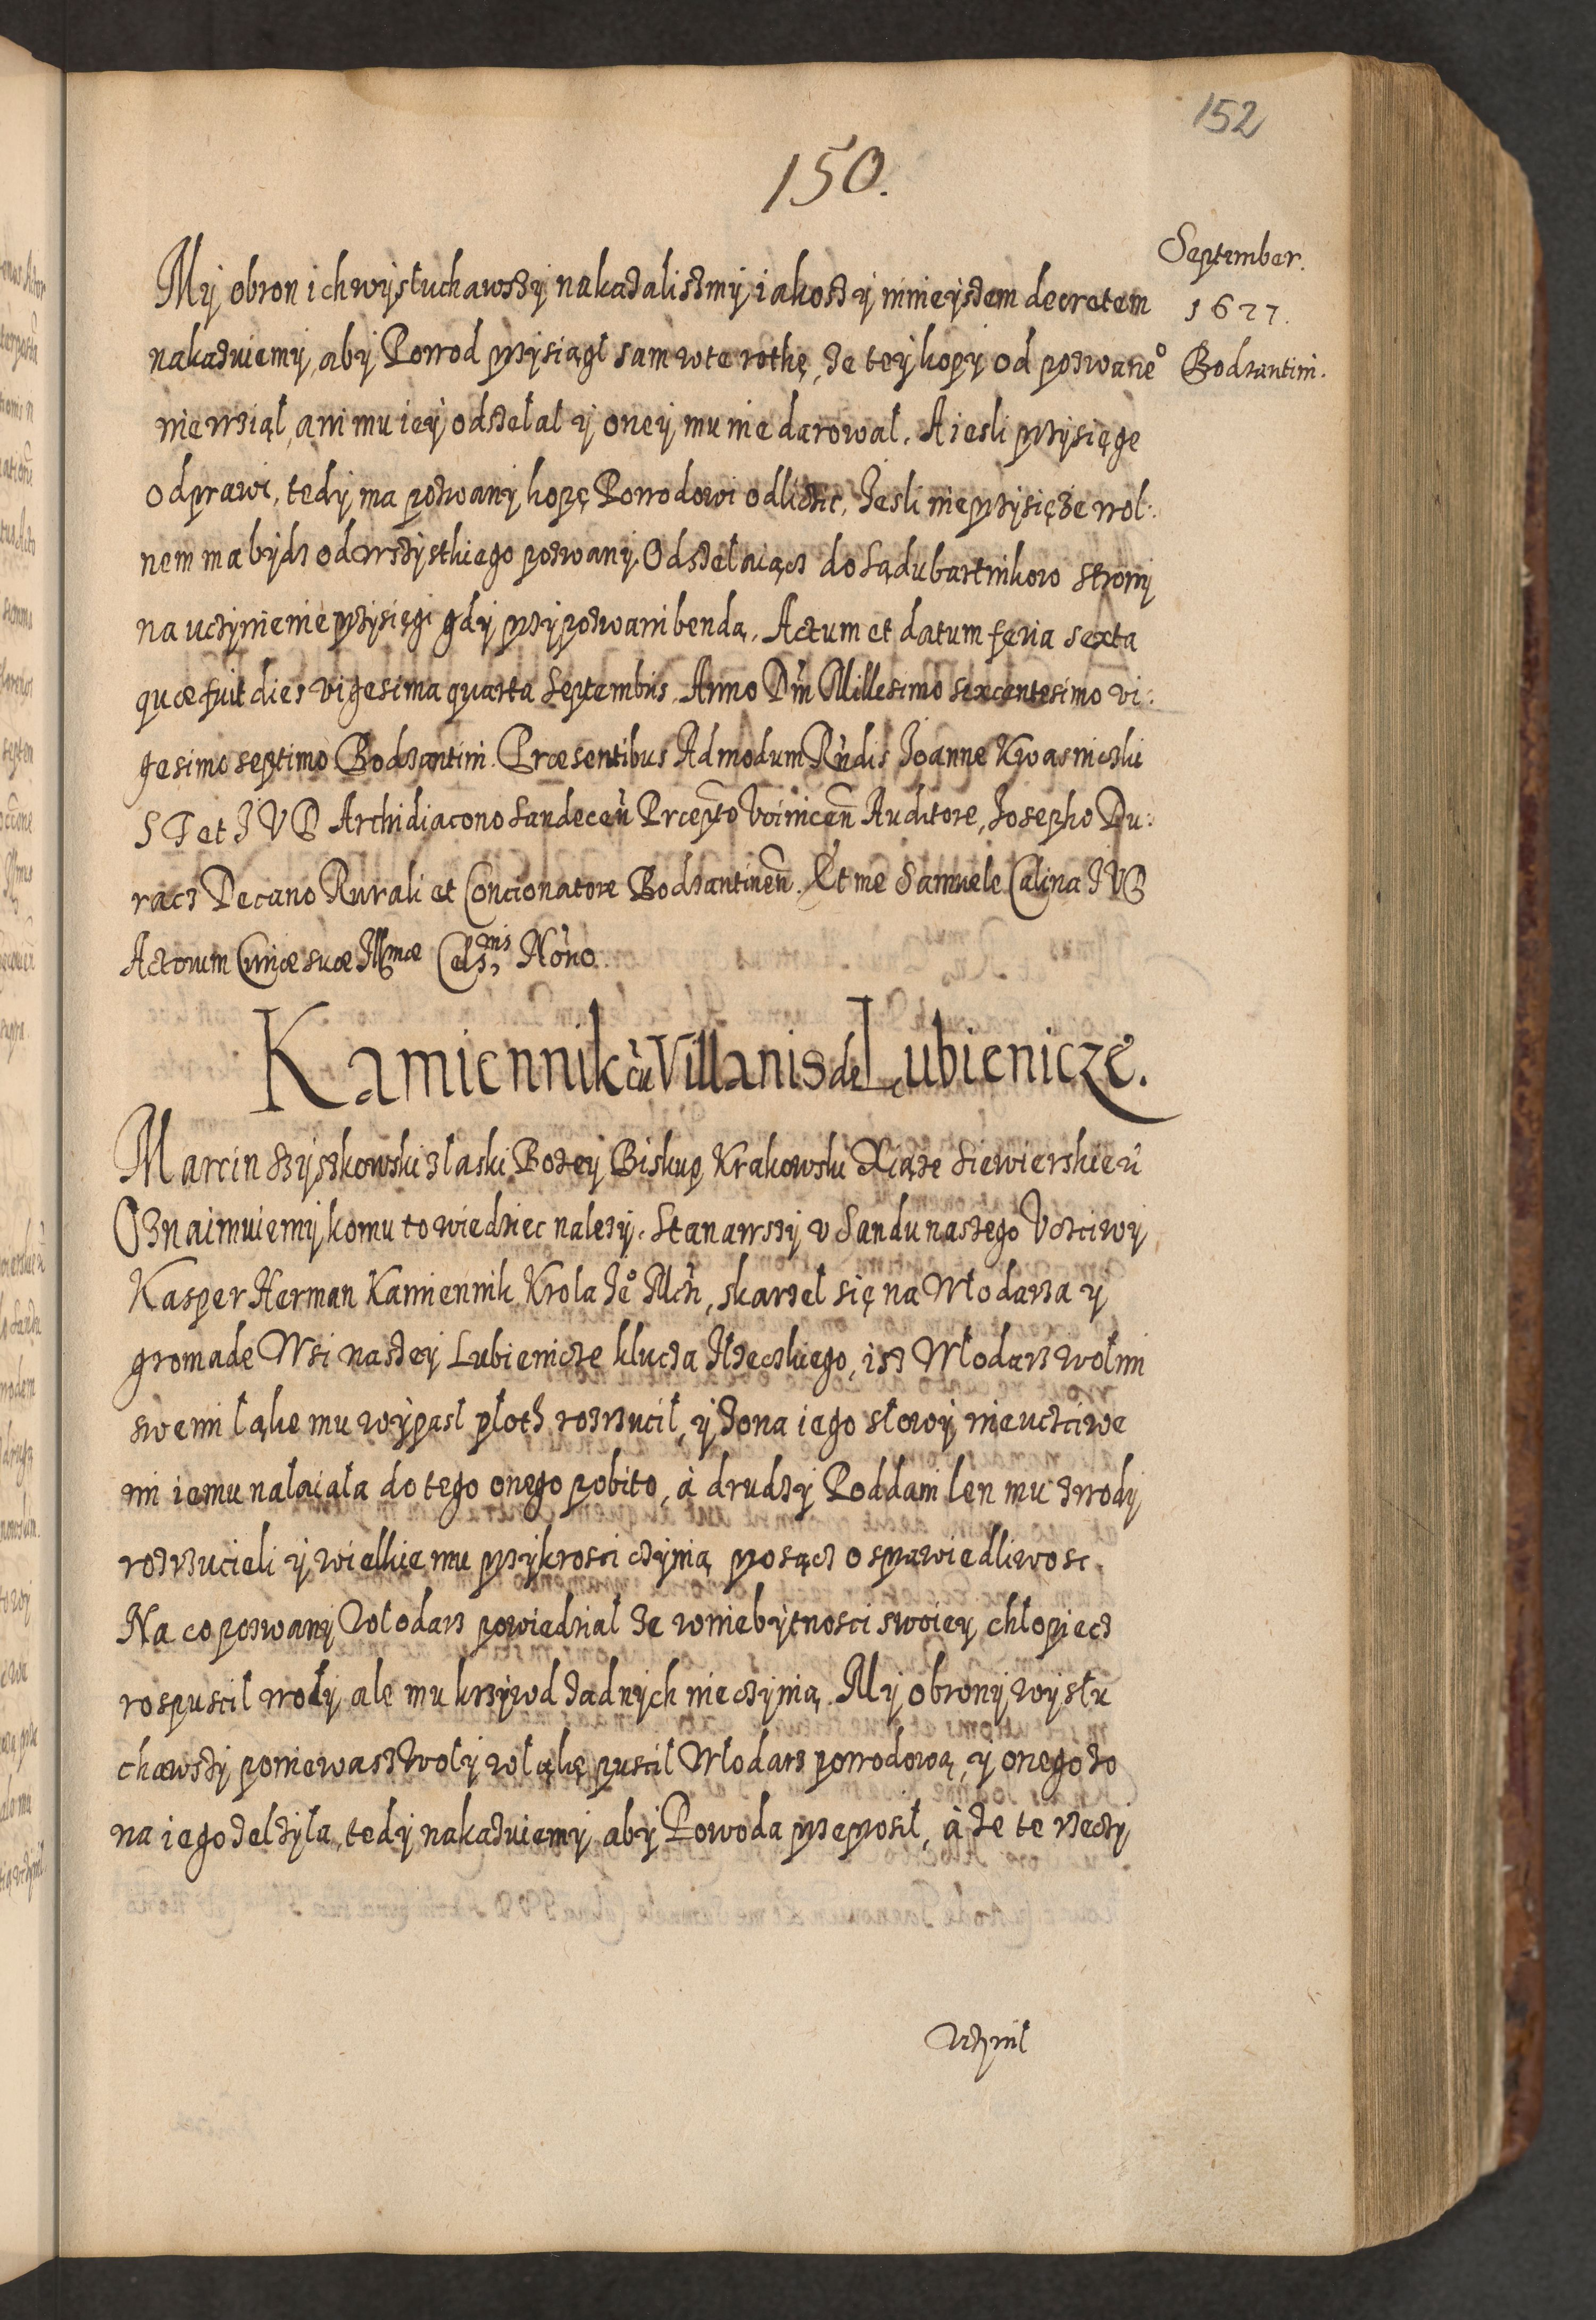 152
150.
September.
1627.
Bodzantini.
My obron ich wysłuchawszy nakazaliszmy iakosz y ninieyszem decretem
nakazuiemy, aby Powod przysiągł sam w te rothę, że tey kopy od pozwane°
nie wziął, ani mu iey odszełał y oney mu nie darował. A iesli przysięgę
odprawi, tedy ma pozwany kopę Powodowi odliczić, Jesli nie przysięże wol:
nem ma bydz od wszystkiego pozwany. Odszełaiącz do sądu bartnikow strony
na uczynienie przysięgi gdy przypozwani benda. Actum et datum feria sexta
quæ fuit dies vigesima quarta Septembris. Anno Dni Millesimo sexcentesimo vi:
gesimo septimo Bodzantini. Præsentibus Admodum Rndis Joanne Kwasniczki
S T et J V D Archidiacono Sandecen Præpto Voinicen Auditore, Josepho Du:
racz Decano Rurali et Concionatore Bodzantinen. Et me Samuele Calina J V D
Actorum Curiæ suæ Illmæ Cels: nis Nōrio.
Kamiennik cū Villanis de Lubienicze.
Marcin Szyszkowski z łaski Bozey Biskup Krakowski Xiąże Siewierskie ū
Oznaimuiemy komu to wiedziec nalezy. Stanawszy v Sandu naszego Vcztiwy
Kasper Herman Kamiennik Krola Je° Mczi, skarzeł się na Włodarza y
gromade Wsi naszey Lubienicze klucza Iłzeczkiego, isz Włodarz wołmi
swemi łąkę mu wypasł płoth rozrzucił, y żona iego słowy nieucztiwe
mi iemu nałaiała do tego onego pobito, à drudzy Poddani len mu z wody
rozrzucieli y wielkie mu przykrosci czynią prosącz o sprawiedliwosc.
Na co pozwany Włodarz powiedział że w niebytnosci swoiey chłopiecz
rospuscił woły ale mu krzywd żadnych nie czynią. My obrony wysłu
chawszy poniewasz woły w łąkę puscił Włodarz powodową, y onego żo
na iego zelzyła, tedy nakazuiemy aby Powoda przeprosił, à że te rzeczy
Vczynił